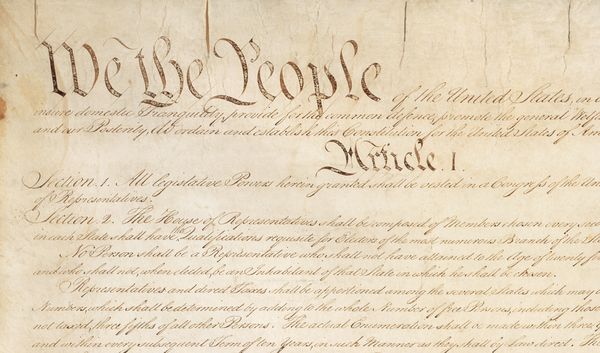 We the People of the United States, in
insure domestic Tranquility, provide for the common defence, promote the general Welf
and our Posterity, do ordain and establish this Constitution for the United States of Am
Article. I.
Section. 1. All legislative Powers herein granted shall be vested in a Congress of the Un
of Representatives.
Section. 2. The House of Representatives shall be composed of Members chosen every sec
in each State shall have the Qualifications requisite for Electors of the most numerous Branch of the St
No Person shall be a Representative who shall not have attained to the Age of twenty fi
and who shall not, when elected, be an Inhabitant of that State in which he shall be chosen.
Representatives and direct Taxes shall be apportioned among the several States which may
Numbers, which shall be determined by adding to the whole Number of free Persons, including those
not taxed, three fifths of all other Persons. The actual Enumeration shall be made within three
and within every subsequent Term of ten Years, in such Manner as they shall by Law direct. The